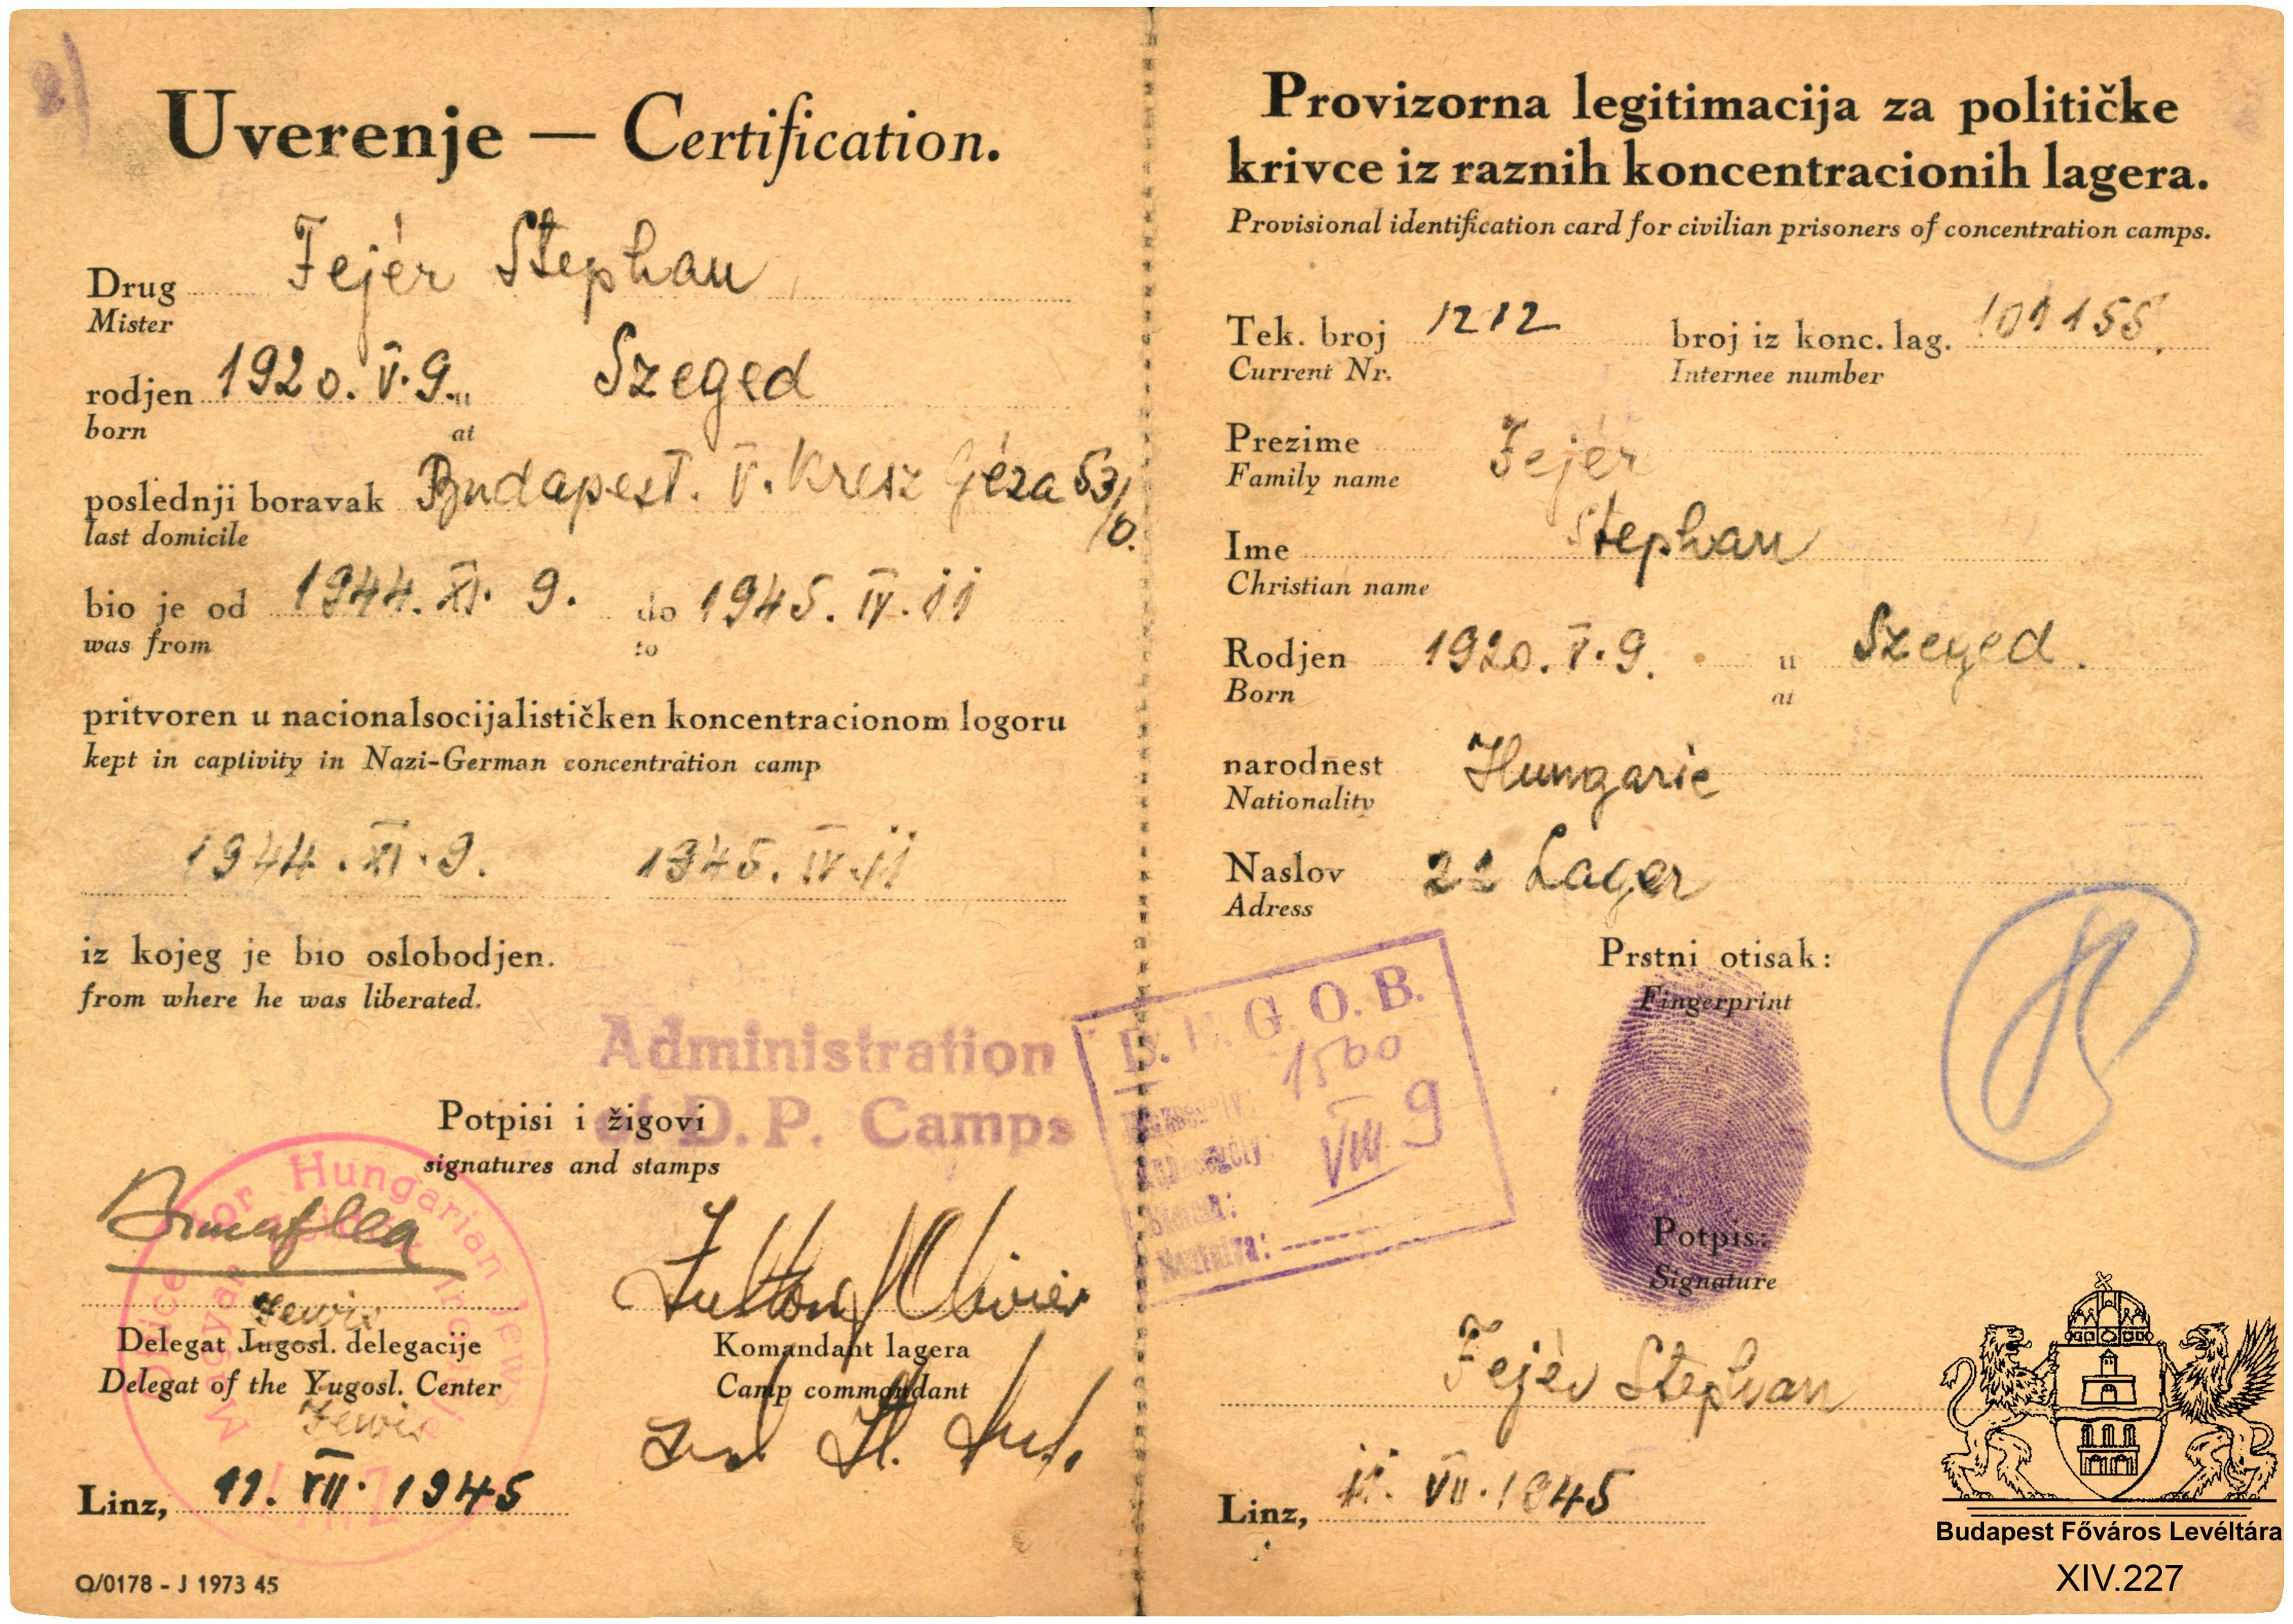 Uverenje — Certification.
Drug Fejér Stephan
Mister
rodjen 1920. V. 9. u Szeged
born at
poslednji boravak Budapest. V. Kresz Géza 53/
last domicile
bio je od 1944. XI. 9. do 1945. IV. 11
was from to
pritvoren u nacionalsocijalističken koncentracionom logoru
kept in captivity in Nazi-German concentration camp
1944. XI. 9. 1945. IV. 11
iz kojeg je bio oslobodjen.
from where he was liberated.
Administration
of D. P. Camps
Potpisi i žigovi
signatures and stamps
Office for Hungarian Jews
Jewis
Delegat Jugosl. delegacije
Delegat of the Yugosl. Center
Jewis
Komandant lagera
Camp commandant
Linz, 11. VII. 1945
Q/0178 - J 1973 45
Provizorna legitimacija za političke
krivce iz raznih koncentracionih lagera.
Provisional identification card for civilian prisoners of concentration camps.
Tek. broj 1212 broj iz konc. lag. 101155.
Current Nr. Internee number
Prezime Fejér
Family name
Ime Stephan
Christian name
Rodjen 1920. V. 9. u Szeged.
Born at
narodnest Hungarie
Nationality
Naslov 21 Lager
Adress
D. E. G. O. B.
1560
VIII. 9
Prstni otisak:
Fingerprint
Potpis:
Signature
Fejér Stephan
Linz, 11. VII. 1945
Budapest Főváros Levéltára
XIV.227